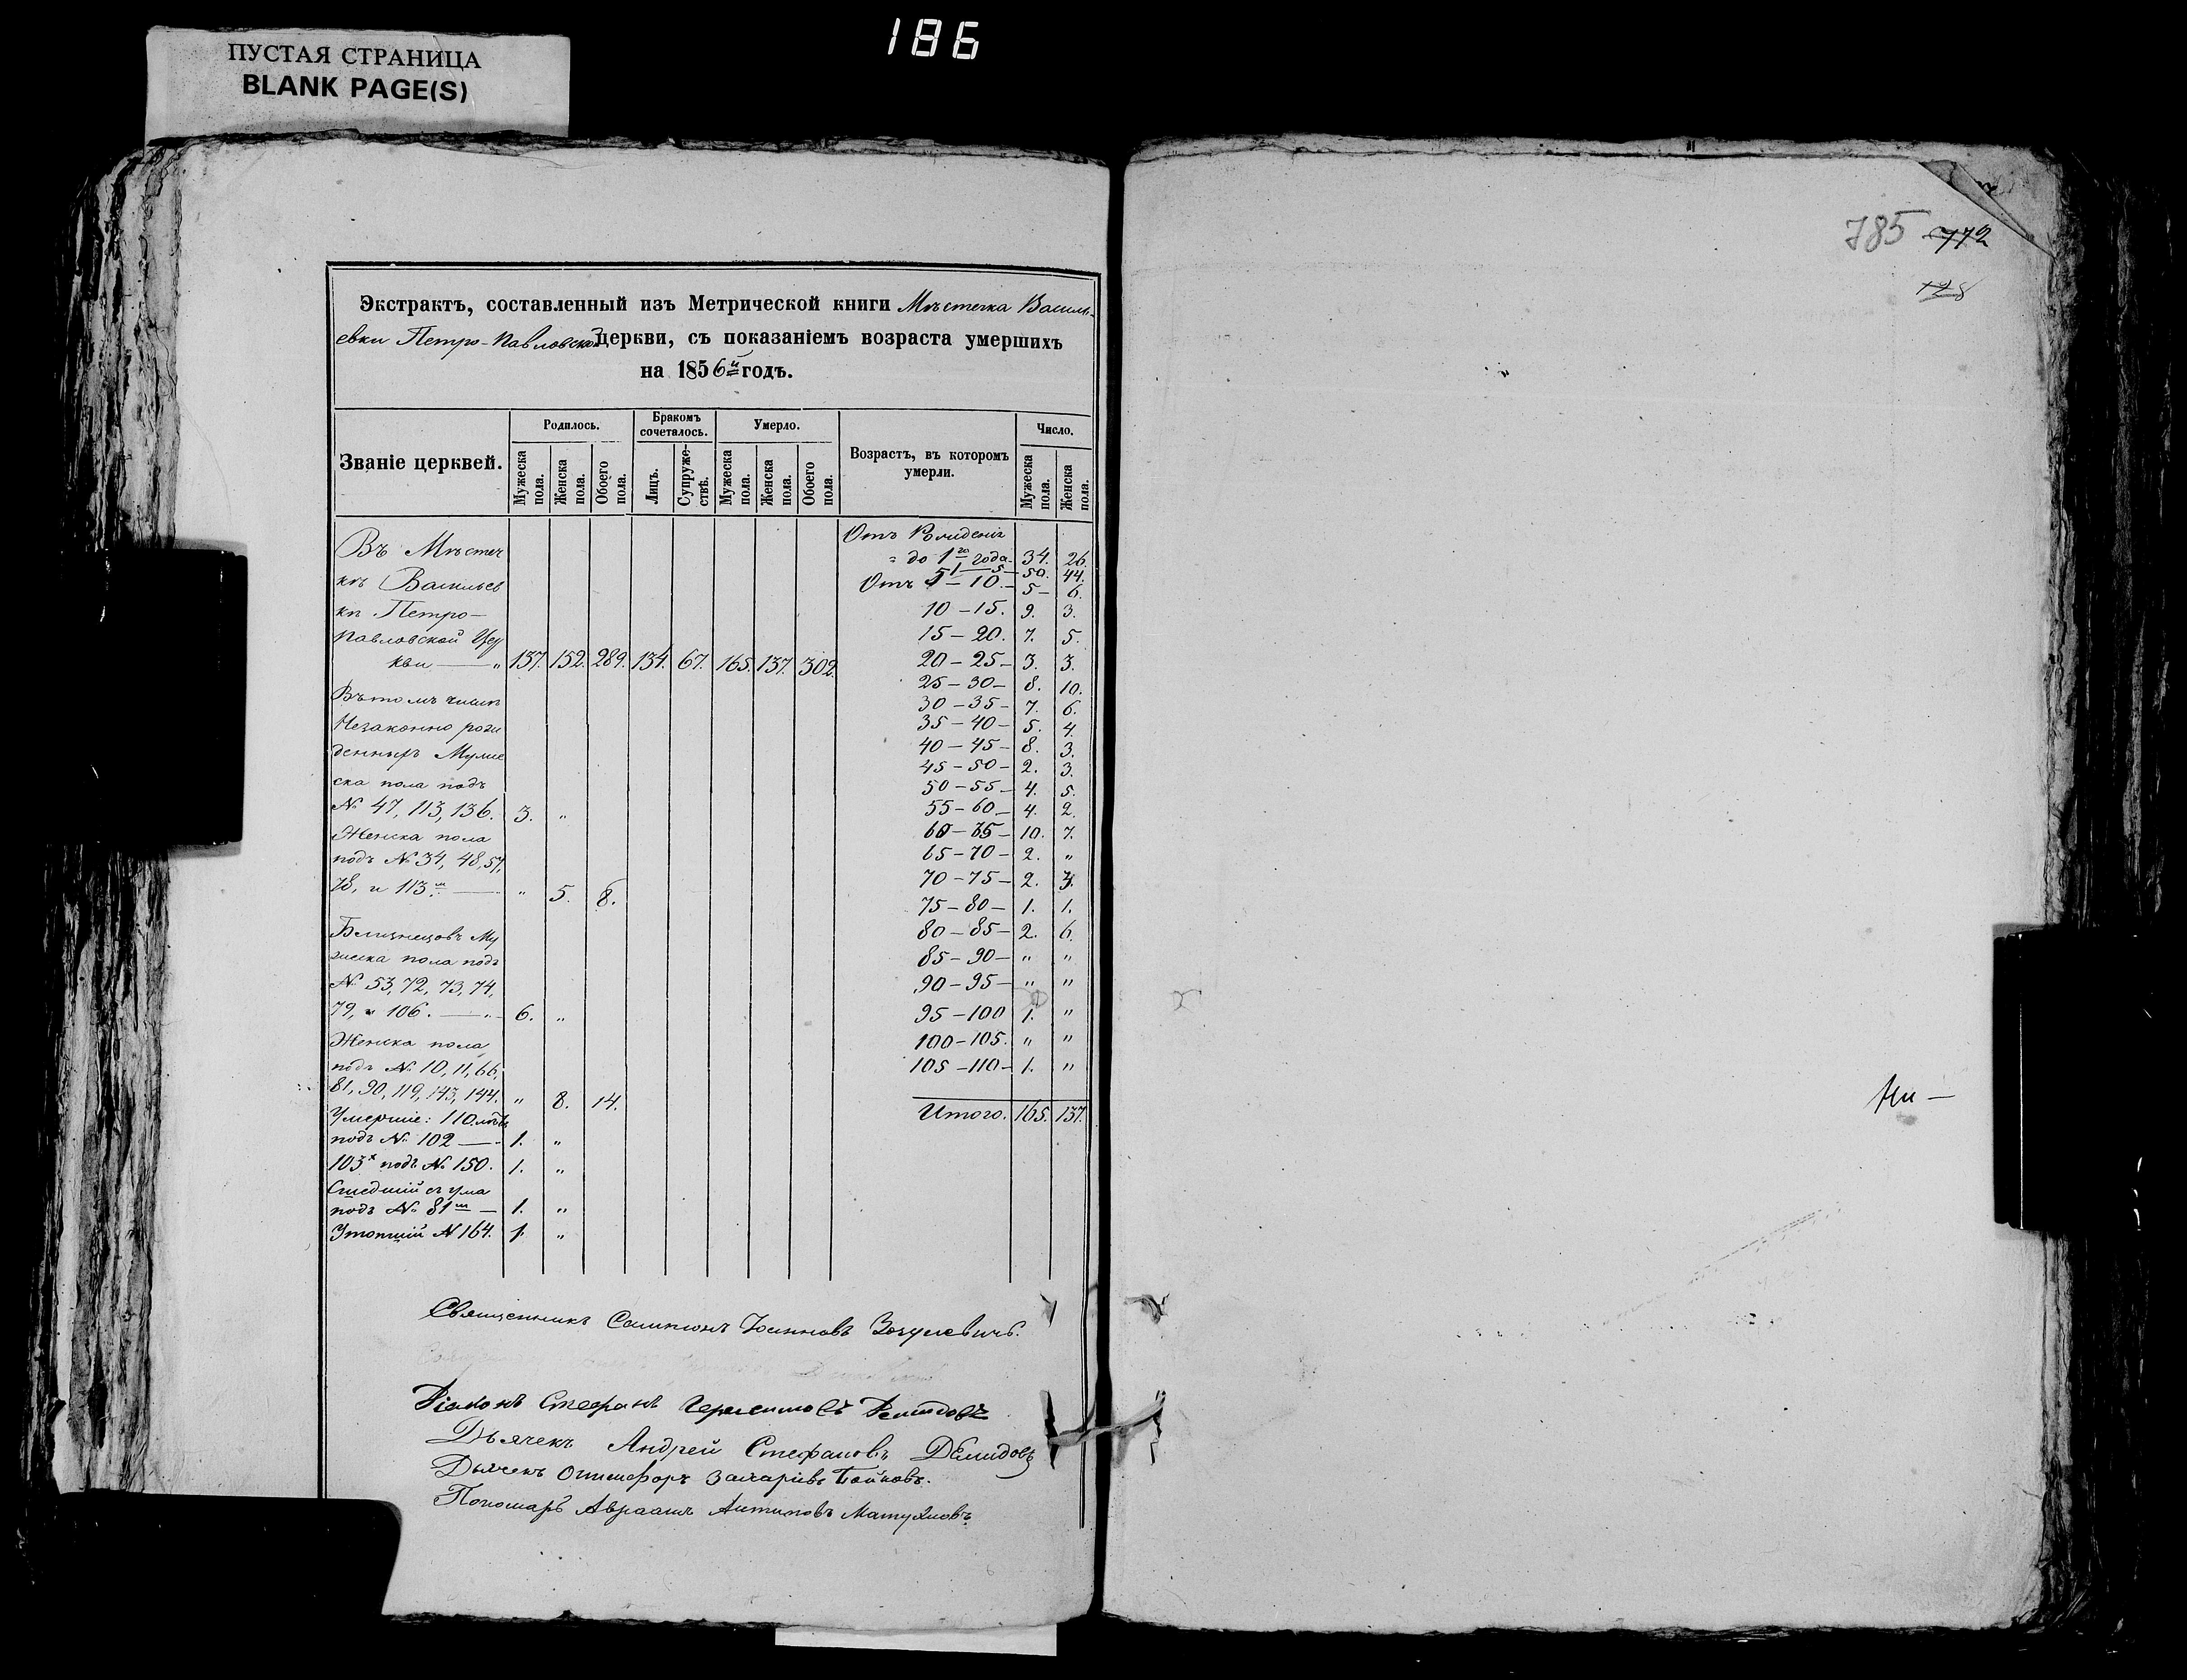 186
ПУСТАЯ СТРАНИЦА
BLANK PAGE(S)
785 772
128
Экстрактъ, составленный изъ Метрической книги Мѣстечка Василь-
евки Петро-Павловской церкви, съ показаніемъ возраста умершихъ
на 1856й годъ.
Званіе церквей.
Родилось.
Мужеска пола.
Женска пола.
Обоего пола.
Бракомъ сочеталось.
Лицъ.
Супружествъ.
Умерло.
Мужеска пола.
Женска пола.
Обоего пола.
Возрастъ, въ которомъ умерли.
Число.
Мужеска пола.
Женска пола.
Въ Мѣстеч
кѣ Васильев
кѣ Петро-
Павловской Цер
кви — „ 137. 152. 289. 134. 67. 165. 137. 302.
Въ томъ числѣ
Незаконно рож
денныхъ Муже
ска пола подъ
№ 47, 113, 136. 3. „
Женска пола
подъ № 34, 48, 57,
78, и 113м — „ 5. 8.
Близнецовъ Му
жеска пола подъ
№ 53, 72, 73, 74,
79, и 106. — 6. „
Женска пола
подъ № 10, 11, 66,
81, 90, 119, 143, 144. „ 8. 14.
Умершіе: 110 лѣтъ
подъ № 102 — 1. „
103х подъ № 150. 1. „
Сшедшій съ ума
подъ № 81м — 1. „
Утопшій № 164. 1. „
Отъ Рожденія
до 1го года. 34. 26.
1 — 5 — 50. 44.
Отъ 5 — 10. — 5 — 6.
10 — 15. 9. 3.
15 — 20. 7. 5.
20 — 25 — 3. 3.
25 — 30 — 8. 10.
30 — 35 — 7. 6.
35 — 40 — 5. 4.
40 — 45 — 8. 3.
45 — 50 — 2. 3.
50 — 55 — 4. 5.
55 — 60 — 4. 2.
60 — 65 — 10. 7.
65 — 70 — 2. „
70 — 75 — 2. 3.
75 — 80 — 1. 1.
80 — 85 — 2. 6.
85 — 90 — „ „
90 — 95 — „ „
95 — 100 1. „
100 — 105. „ „
105 — 110 — 1. „
Итого. 165. 137.
Священникъ Сампсонъ Іоанновъ Зозулевичъ.
Діаконъ Стефанъ Герасимовъ Демидовъ
Дьячекъ Андрей Стефановъ Демидовъ
Дьячекъ Онисифоръ Захаріевъ Бойковъ.
Пономарь Авраамъ Антиповъ